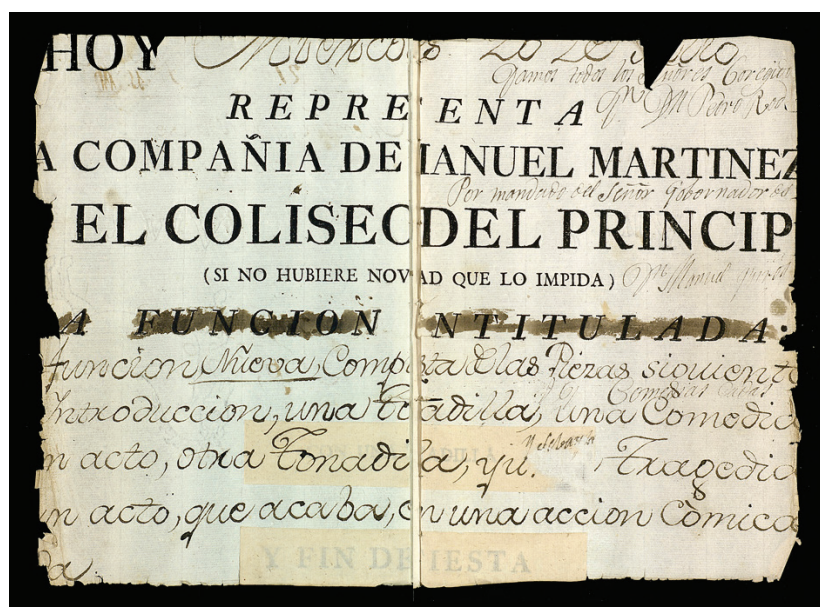 HOY Miercoles 20 de Julio
Vamos todos los Señores Corregidor
REPRESENTA
A COMPAÑIA DE MANUEL MARTINEZ
Por mandado del Señor Gobernador
EL COLISEO DEL PRINCIP
(SI NO HUBIERE NOV AD QUE LO IMPIDA)
A FUNCION NTITULADA:
funcion Nueva, Compuesta de las Piezas siguiente
Comedias
Introduccion, una Tonadilla, una Comedia
n acto, otra Tonadilla, y Tragedia
n acto, que acaba, en una accion Cómica
Y FIN DE IESTA
da